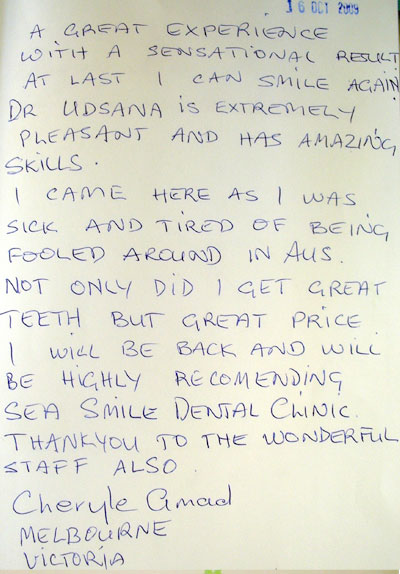 16 OCT 2009
A GREAT EXPERIENCE
WITH A SENSATIONAL RESULT
AT LAST I CAN SMILE AGAIN
DR UDSANA IS EXTREMELY
PLEASANT AND HAS AMAZING
SKILLS.
I CAME HERE AS I WAS
SICK AND TIRED OF BEING
FOOLED AROUND IN AUS.
NOT ONLY DID I GET GREAT
TEETH BUT GREAT PRICE
I WILL BE BACK AND WILL
BE HIGHLY RECOMENDING
SEA SMILE DENTAL CLINIC.
THANKYOU TO THE WONDERFUL
STAFF ALSO.
Cheryle Amad
MELBOURNE
VICTORIA